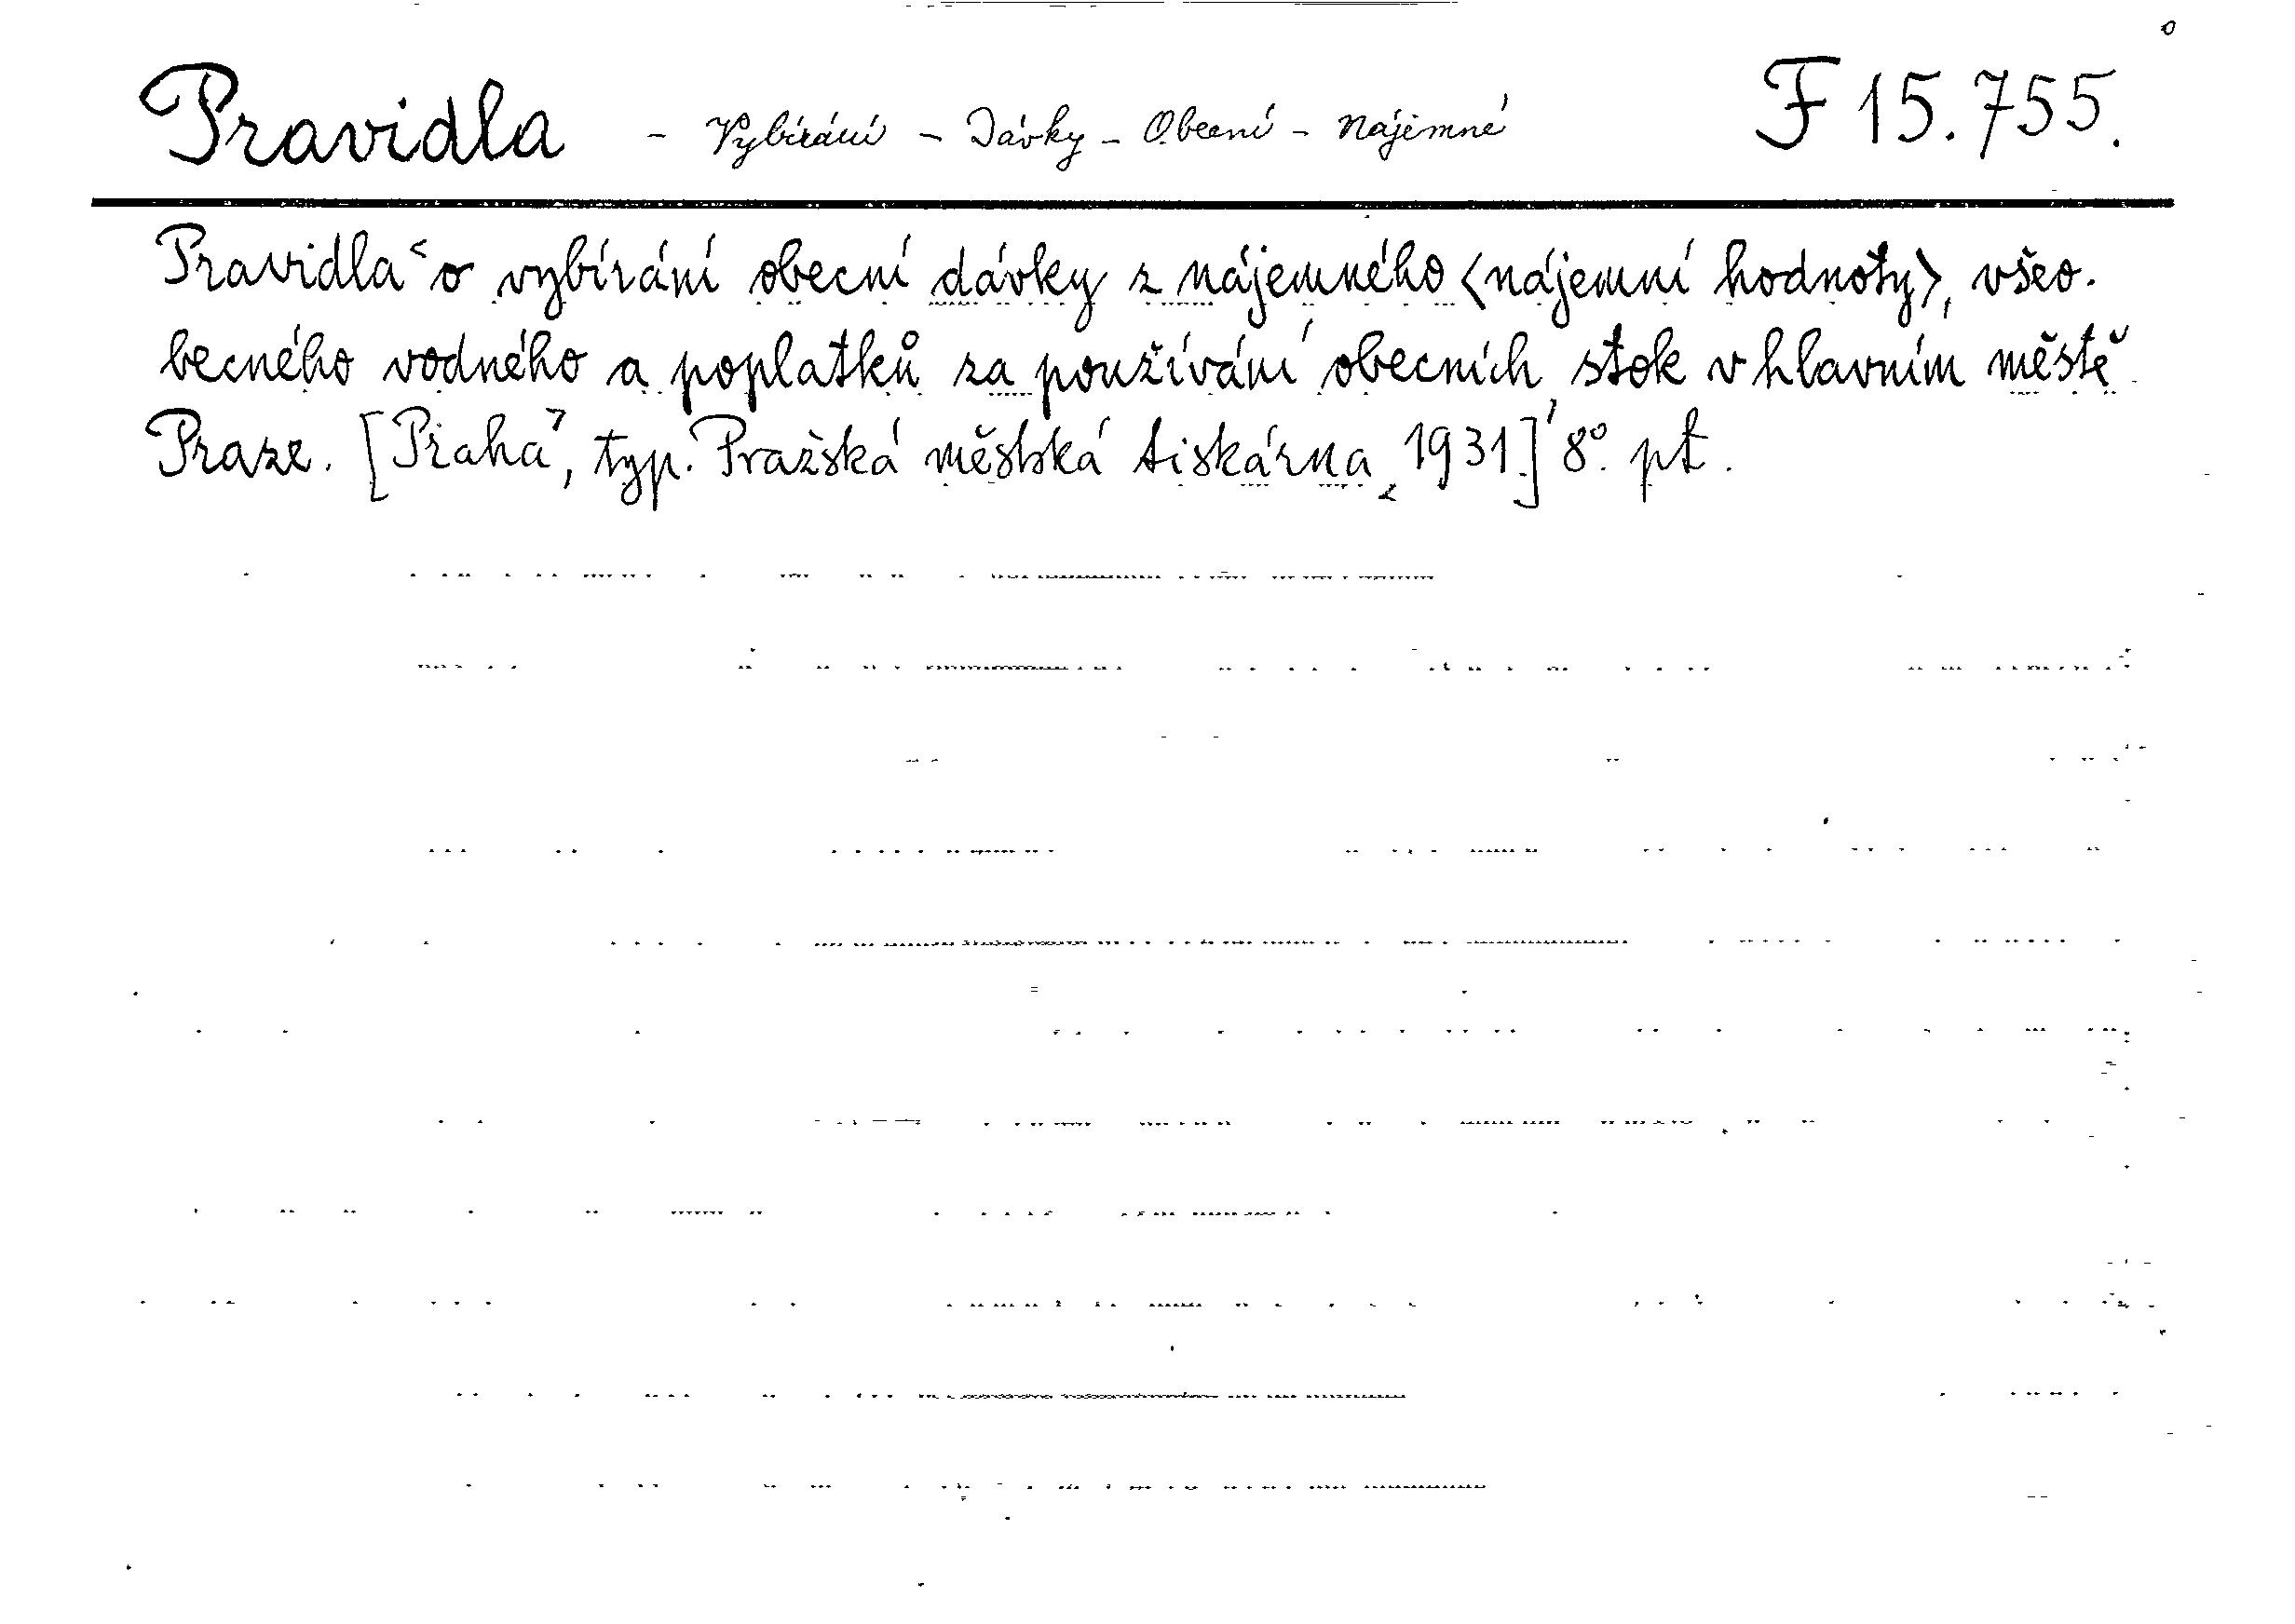 Pravidla - Vybírání - Dávky - Obecní - Nájemné F 15.755.
Pravidla o vybírání obecní dávky z nájemného <nájemní hodnoty>, všeo-
becného vodného a poplatků za používání obecních stok v hlavním městě
Praze. [Praha, typ. Pražská městská tiskárna, 1931.] 8°. pt.